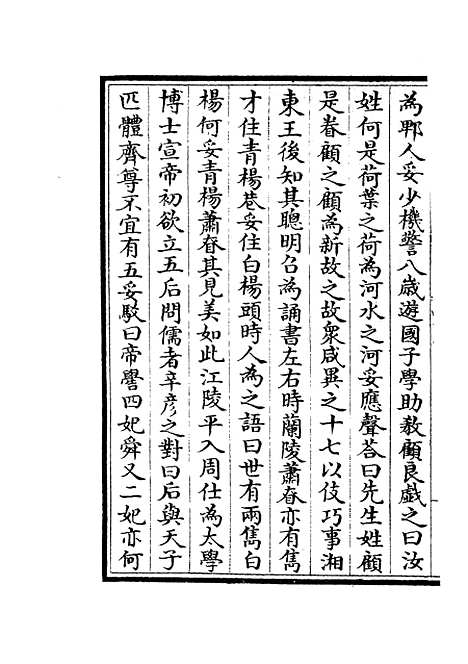 為郫人妥少機警八歲遊國子學助敎顧良戲之曰汝
姓何是荷葉之荷為河水之河妥應聲荅曰先生姓顧
是眷顧之顧為新故之故衆咸異之十七以伎巧事湘
東王後知其聰明召為誦書左右時蘭陵蕭眘亦有雋
才住青楊巷妥住白楊頭時人為之語曰世有兩雋白
楊何妥青楊蕭眘其見美如此江陵平入周仕為太學
博士宣帝初欲立五后問儒者辛彥之對曰后與天子
匹體齊尊不宜有五妥駁曰帝嚳四妃舜又二妃亦何